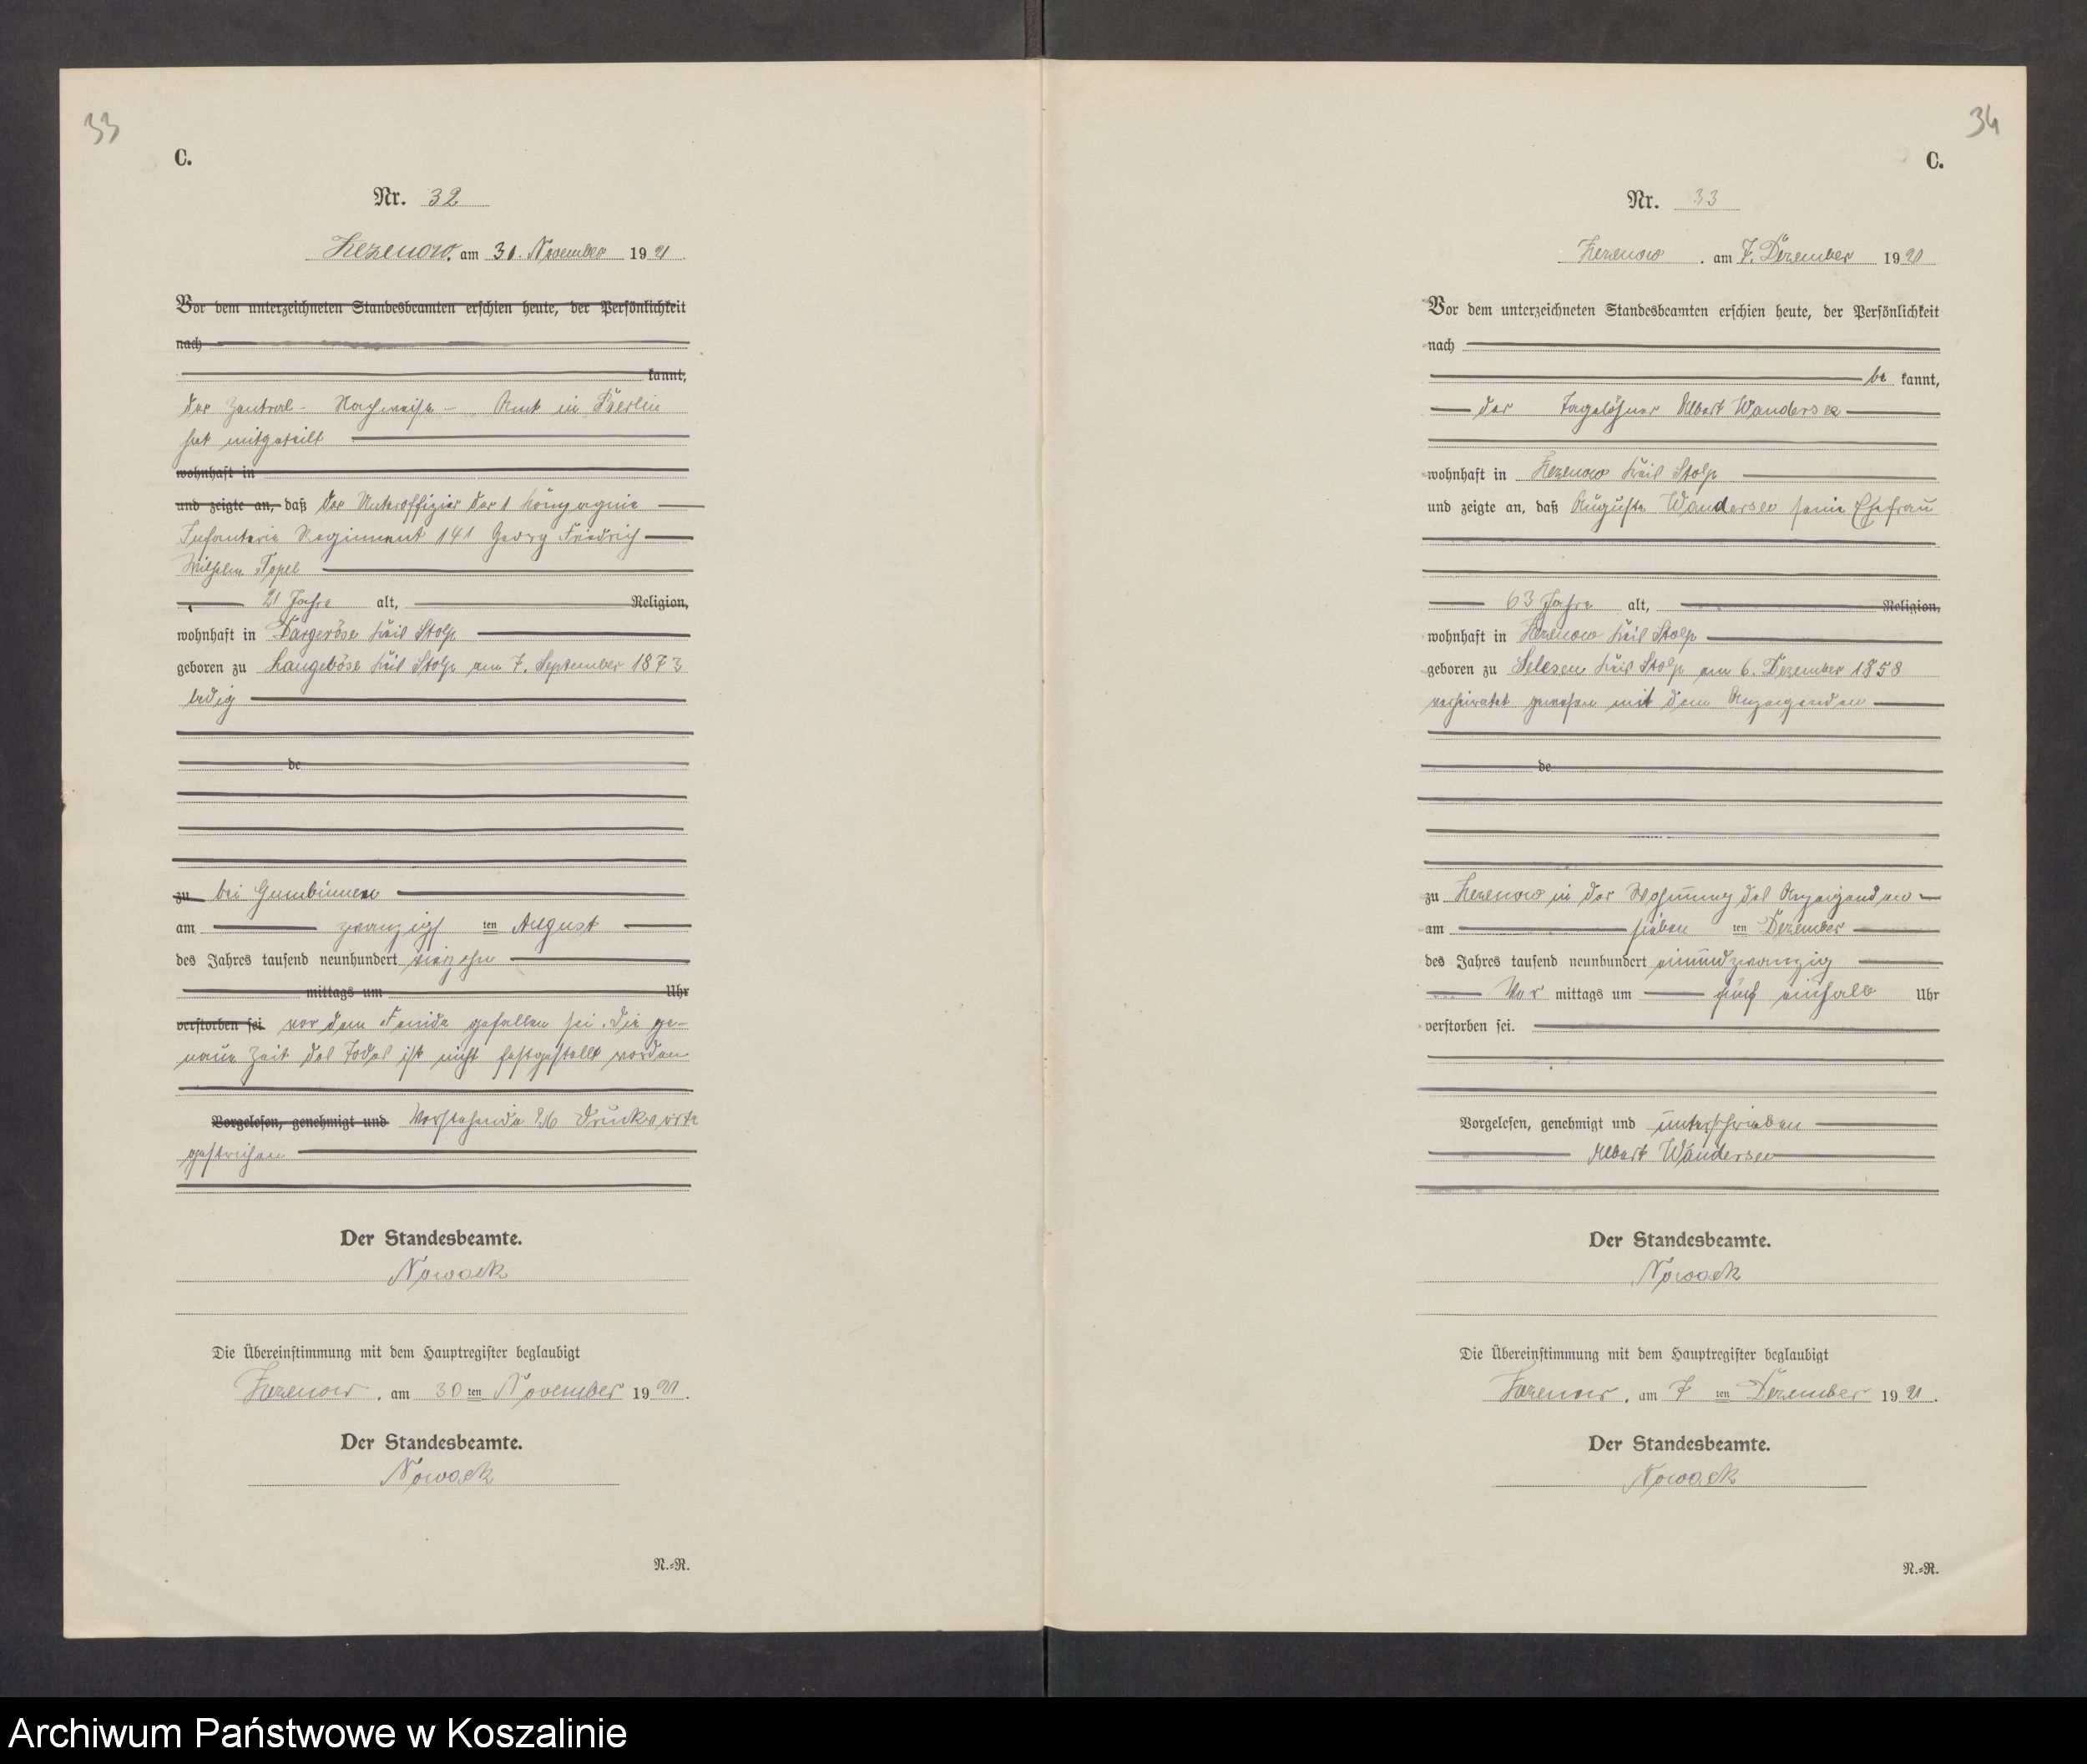 33
C.
Nr. 32
Zezenow, am 30. November 1921.
Vor dem unterzeichneten Standesbeamten erschien heute, der Persönlichkeit
nach
kannt,
Das Zentral-Nachweise-Amt in Berlin
hat mitgeteilt
wohnhaft in
und zeigte an, daß der Unteroffizier der 1 Kompagnie
Infanterie Regiment 141 Georg Friedrich
Wilhelm Topel
21 Jahre alt, Religion,
wohnhaft in Dargeröse Kreis Stolp
geboren zu Langeböse Kreis Stolp am 7. September 1873
ledig
de
zu bei Gumbinnen
am zwanzigsten August
des Jahres tausend neunhundert vierzehn
mittags um Uhr
verstorben sei. vor dem Feinde gefallen sei. Die ge-
naue Zeit des Todes ist nicht festgestellt worden
Vorgelesen, genehmigt und Vorstehende 26 Druckworte
gestrichen
Der Standesbeamte.
Nowack
Die Übereinstimmung mit dem Hauptregister beglaubigt
Zezenow, am 30 ten November 1921.
Der Standesbeamte.
Nowack
N.=R.
34
C.
Nr. 33
Zezenow, am 7. Dezember 1921
Vor dem unterzeichneten Standesbeamten erschien heute, der Persönlichkeit
nach
be kannt,
der Tagelöhner Albert Wandersee
wohnhaft in Zezenow Kreis Stolp
und zeigte an, daß Auguste Wandersee seine Ehefrau
63 Jahre alt, Religion,
wohnhaft in Zezenow Kreis Stolp
geboren zu Selesen Kreis Stolp am 6. Dezember 1858
verheiratet gewesen mit dem Anzeigenden
de
zu Zezenow in der Wohnung des Anzeigenden
am sieben ten Dezember
des Jahres tausend neunhundert einundzwanzig
Vor mittags um fünf einhalb Uhr
verstorben sei.
Vorgelesen, genehmigt und unterschrieben
Albert Wandersee
Der Standesbeamte.
Nowack
Die Übereinstimmung mit dem Hauptregister beglaubigt
Zezenow, am 7 ten Dezember 1921.
Der Standesbeamte.
Nowack
N.=R.
Archiwum Państwowe w Koszalinie